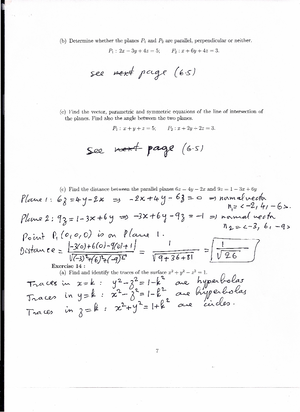 (b) Determine whether the planes P₁ and P₂ are parallel, perpendicular or neither.
P₁ : 2x − 3y + 4z = 5;   P₂ : x + 6y + 4z = 3.
see next page (6.5)
(c) Find the vector, parametric and symmetric equations of the line of intersection of
the planes. Find also the angle between the two planes.
P₁ : x + y + z = 5;   P₂ : x + 2y − 2z = 3.
See next page (6.5)
(e) Find the distance between the parallel planes 6z = 4y − 2x and 9z = 1 − 3x + 6y
Plane 1: 6z = 4y−2x ⇒ −2x+4y−6z = 0 ⇒ normal vector
n₁ = <−2, 4, −6>
Plane 2: 9z = 1−3x+6y ⇒ −3x+6y−9z = −1 ⇒ normal vector
n₂ = <−3, 6, −9>
Point P₁(0,0,0) is on Plane 1.
Distance = |−3(0)+6(0)−9(0)+1| / √((−3)²+(6)²+(−9)²) = 1/√(9+36+81) =
Exercise 14 :
(a) Find and identify the traces of the surface x² + y² − z² = 1.
Traces in x=k : y²−z² = 1−k² are hyperbolas
Traces in y=k : x²−z² = 1−k² are hyperbolas
Traces in z=k : x²+y² = 1+k² are circles.
7